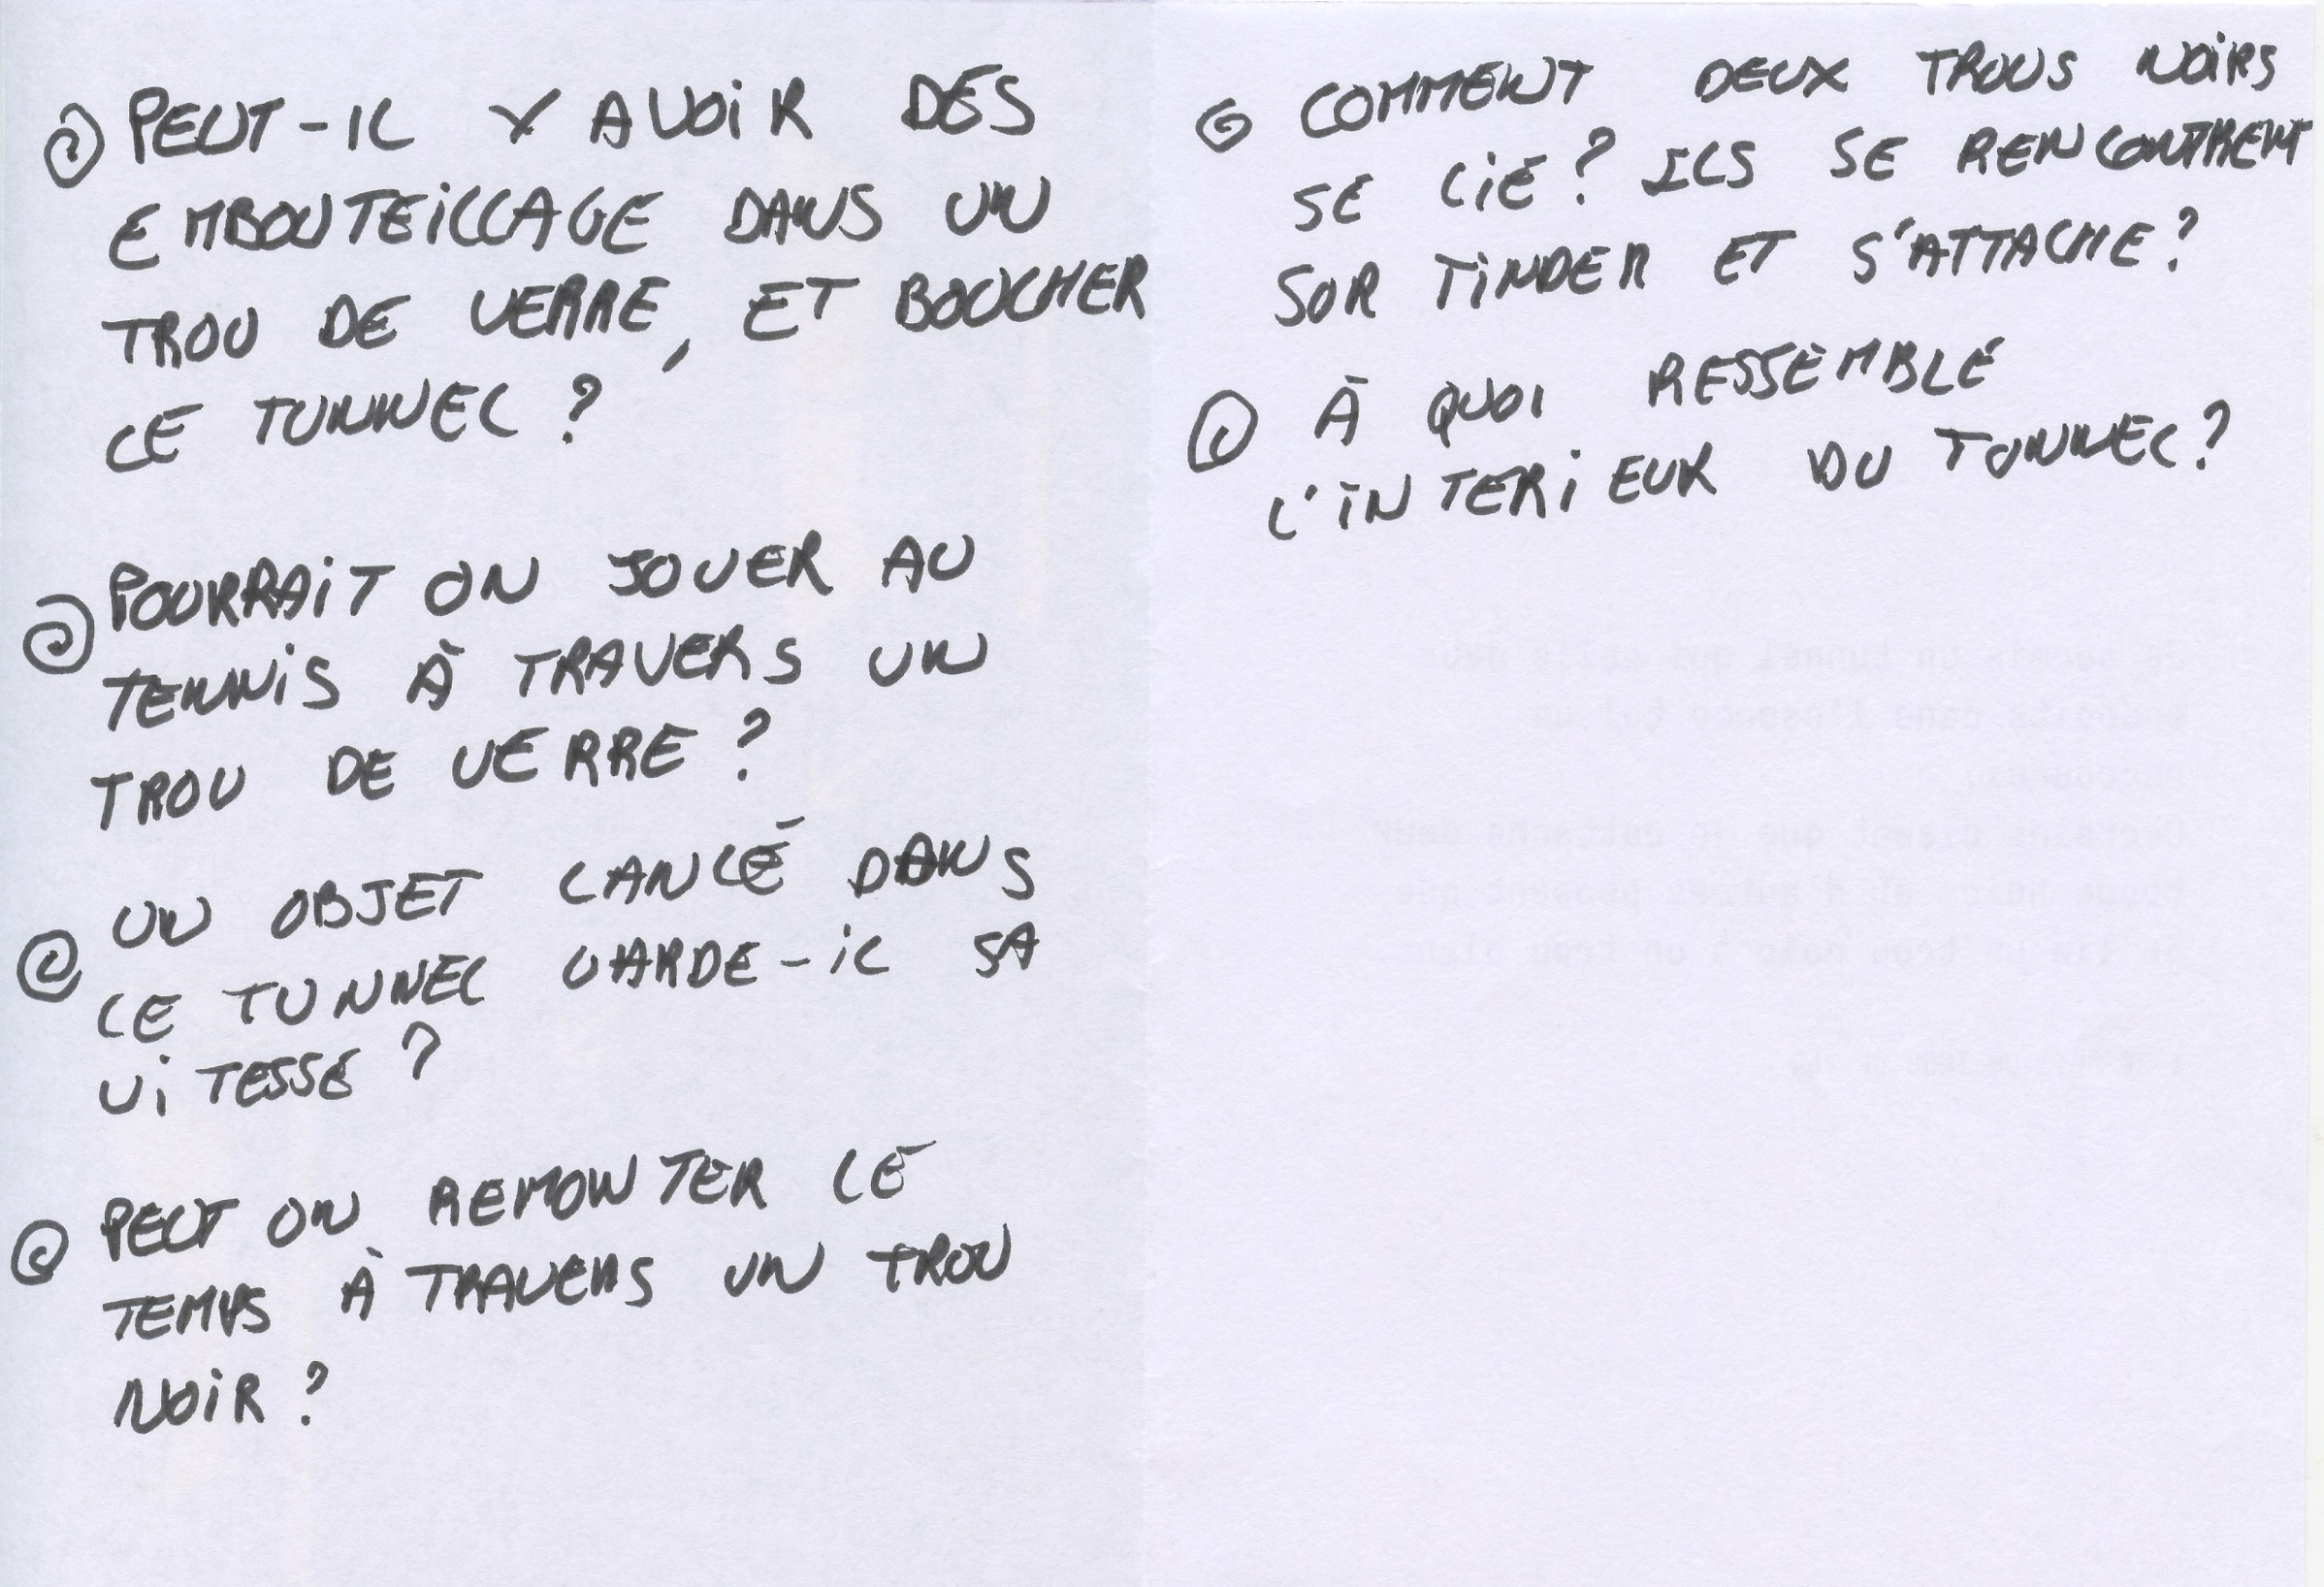 PEUT-IL Y AVOIR DES
EMBOUTEILLAGE DANS UN
TROU DE VERRE, ET BOUCHER
LE TUNNEL ?
POURRAIT ON JOUER AU
TENNIS À TRAVERS UN
TROU DE VERRE ?
UN OBJET LANCÉ DANS
LE TUNNEL GARDE-IL SA
VITESSE ?
PEUT ON REMONTER LE
TEMPS À TRAVERS UN TROU
NOIR ?
COMMENT DEUX TROUS NOIRS
SE LIE ? ILS SE RENCONTRENT
SUR TINDER ET S'ATTACHE ?
À QUOI RESSEMBLE
L'INTERIEUR DU TUNNEL ?